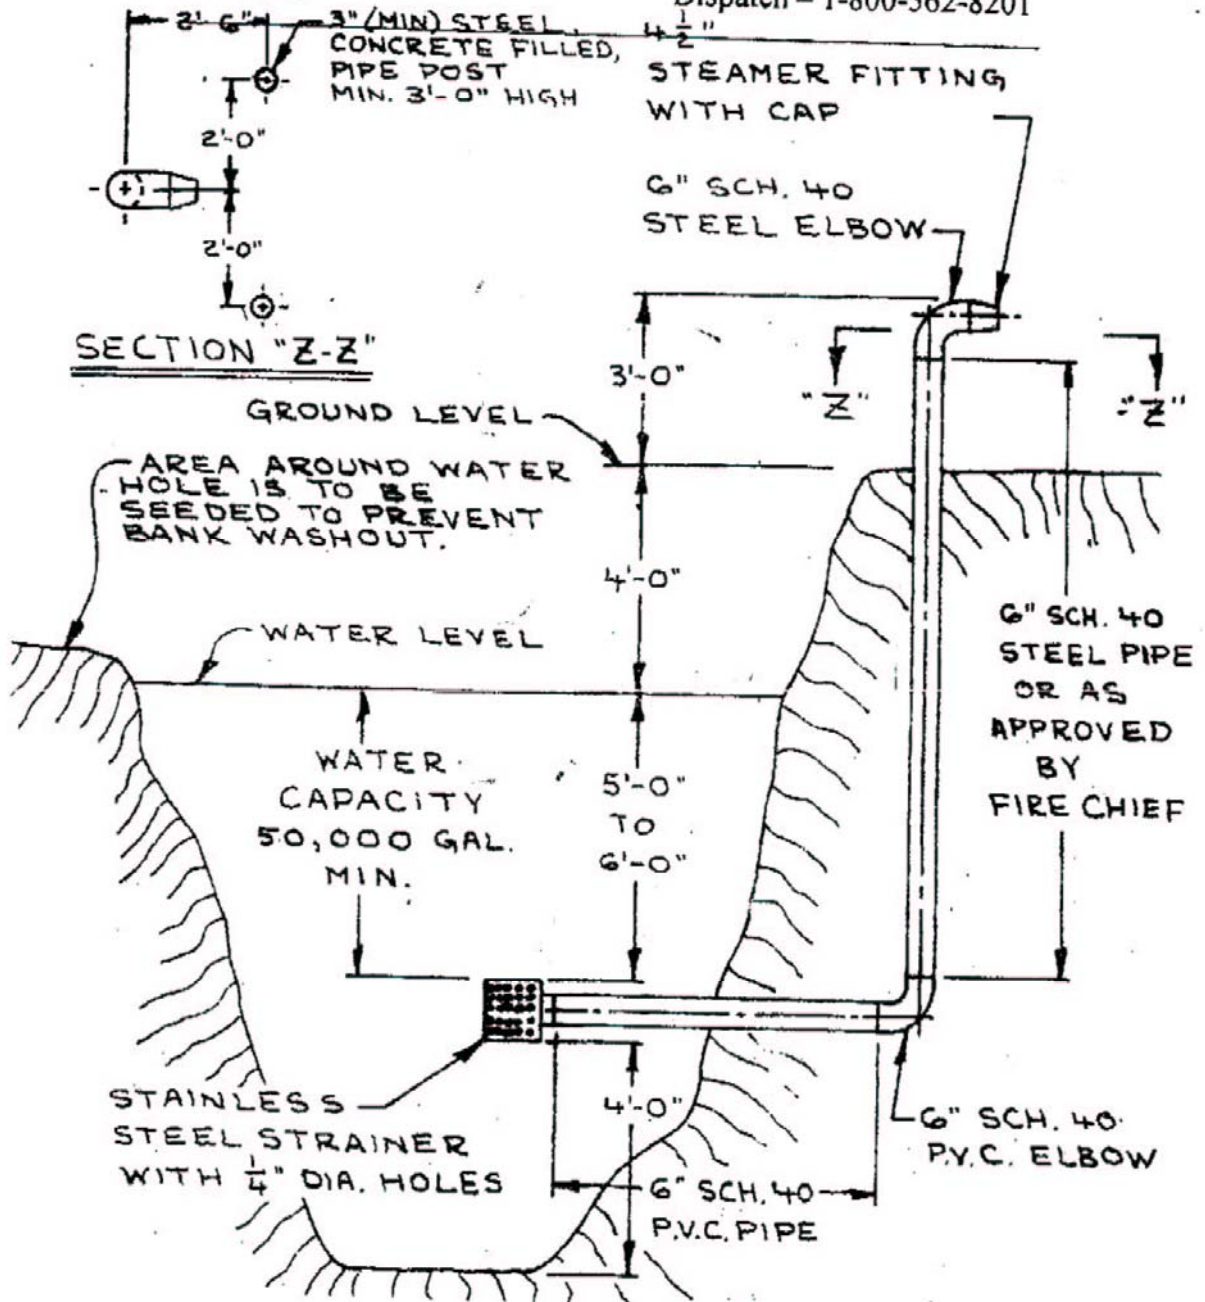 Dispatch – 1-800-562-8201
2'-6"
3" (MIN) STEEL,
CONCRETE FILLED,
PIPE POST
MIN. 3'-0" HIGH
4 1/2"
STEAMER FITTING
WITH CAP
2'-0"
2'-0"
6" SCH. 40
STEEL ELBOW
SECTION "Z-Z"
3'-0"
"Z"
"Z"
GROUND LEVEL
AREA AROUND WATER
HOLE IS TO BE
SEEDED TO PREVENT
BANK WASHOUT.
4'-0"
WATER LEVEL
6" SCH. 40
STEEL PIPE
OR AS
APPROVED
BY
FIRE CHIEF
WATER
CAPACITY
50,000 GAL.
MIN.
5'-0"
TO
6'-0"
STAINLESS
STEEL STRAINER
WITH 1/4" DIA. HOLES
4'-0"
6" SCH. 40
P.V.C. ELBOW
6" SCH. 40
P.V.C. PIPE